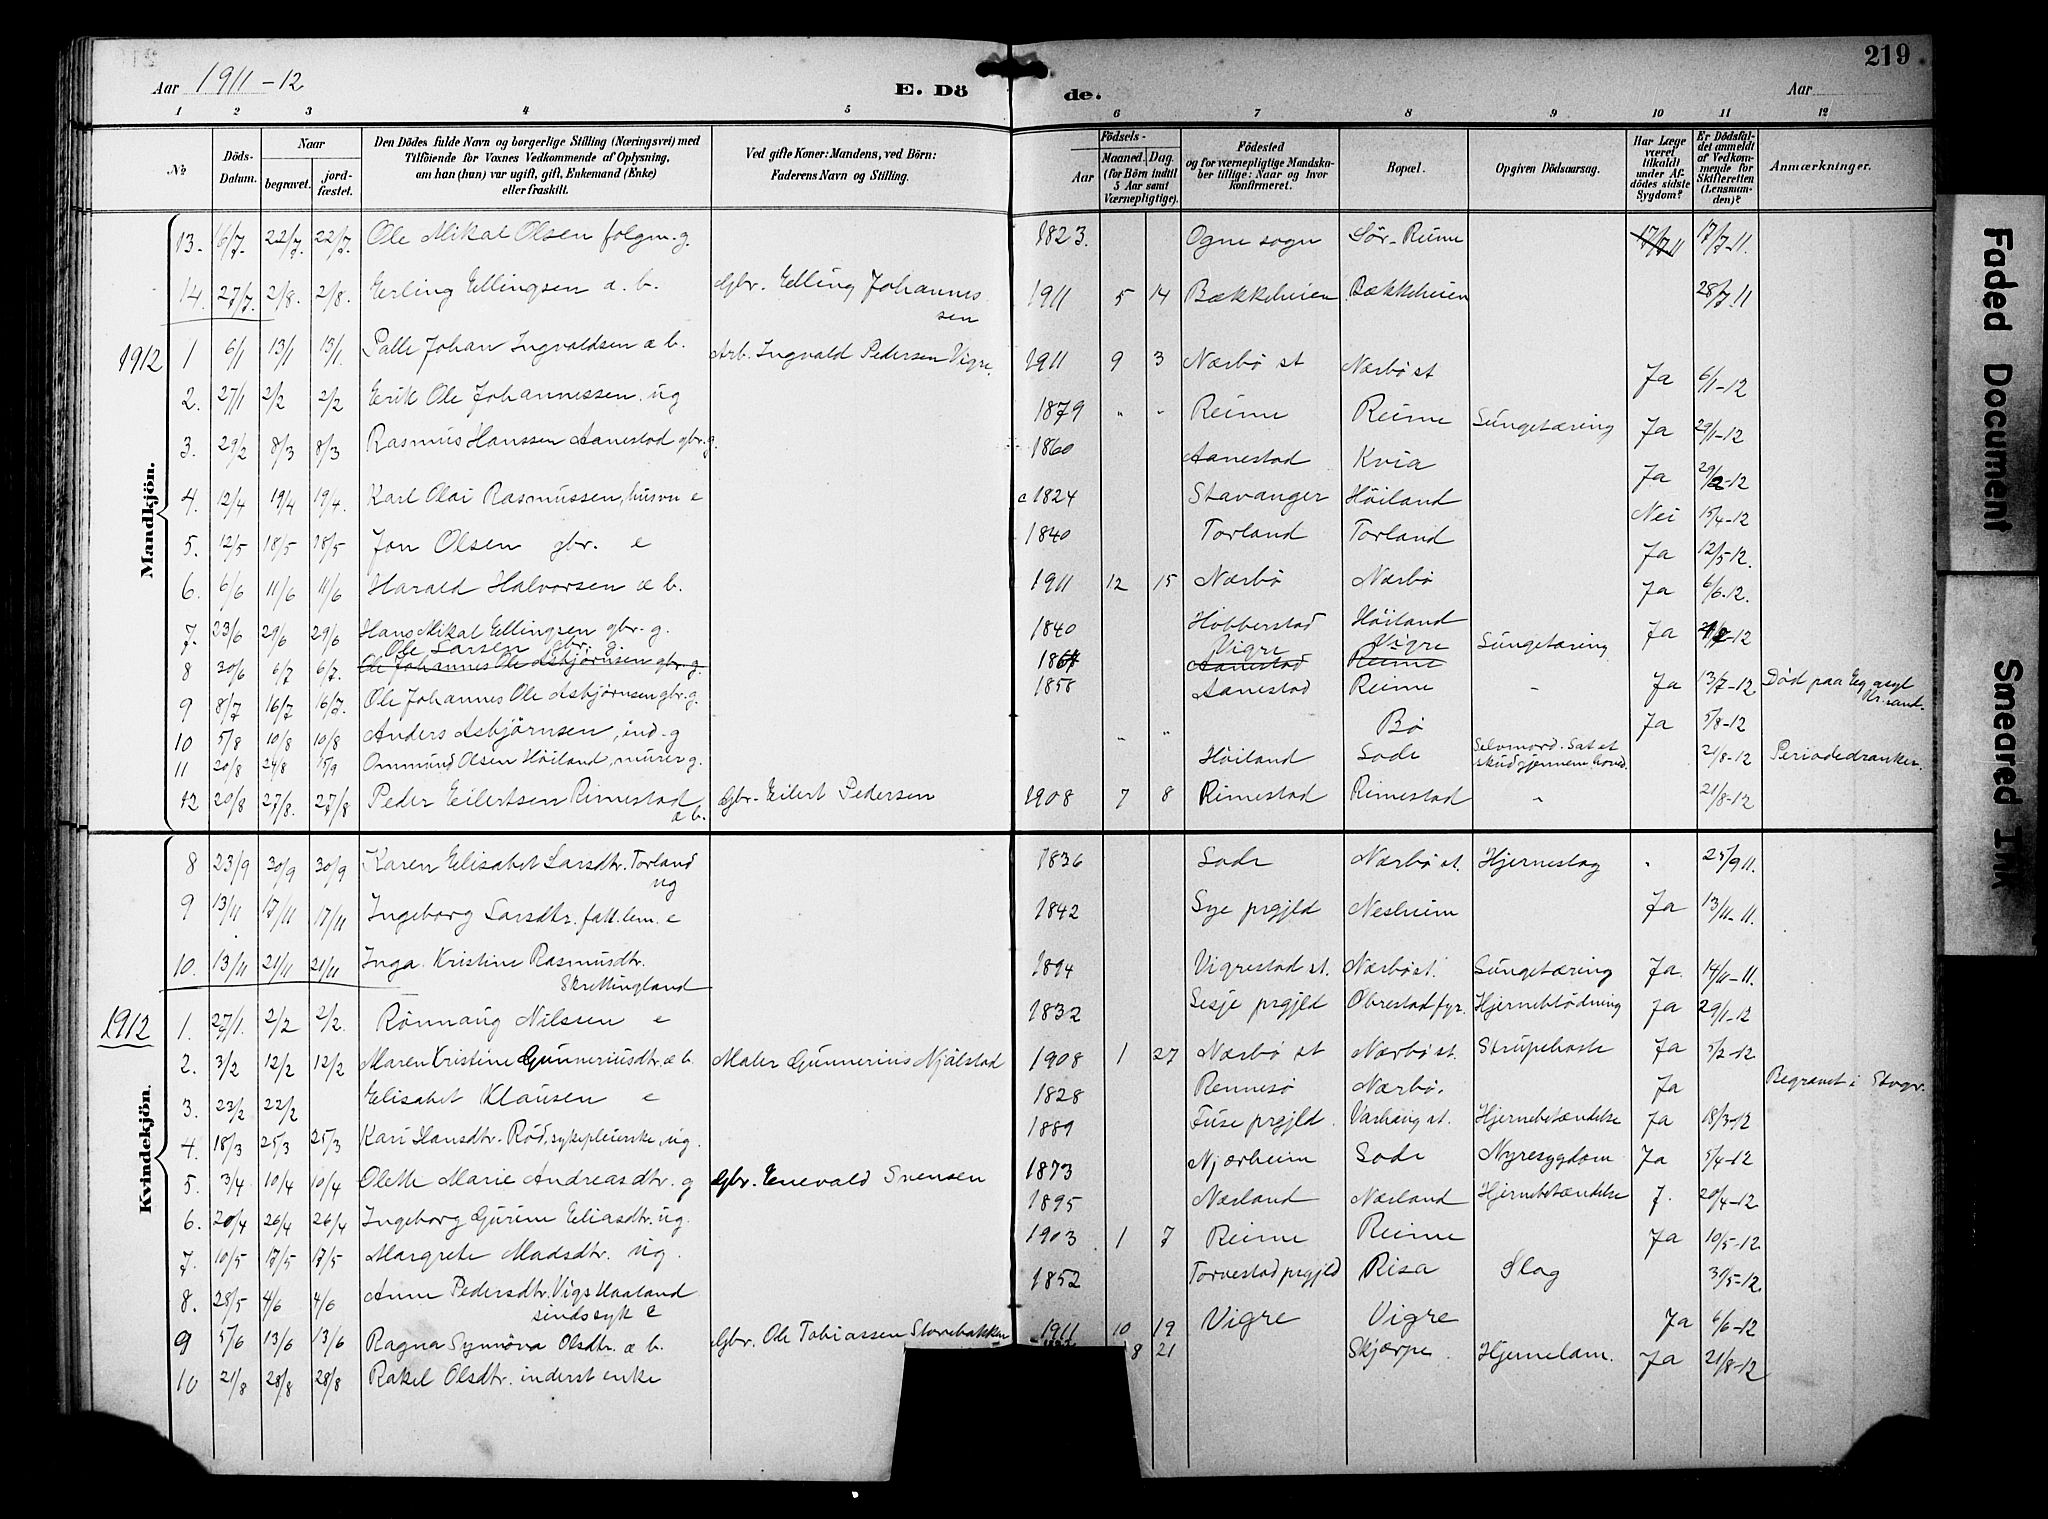 219
Aar 1911-12 E. Dö de. Aar
1 2 3 4 5 6 7 8 9 10 11 12
№ Döds-Datum. Naar begravet. jordfæstet. Den Dödes fulde Navn og borgerlige Stilling (Næringsvei) med Tilföiende for Voxnes Vedkommende af Oplysning, om han (hun) var ugift, gift, Enkemand (Enke) eller fraskilt. Ved gifte Koner: Mandens, ved Börn: Faderens Navn og Stilling. Födsels- Aar Maaned. Dag. (for Börn indtil 5 Aar samt Værnepligtige). Födested og for værnepligtige Mandskaber tillige: Naar og hvor konfirmeret. Bopæl. Opgiven Dödsaarsag. Har Læge været tilkaldt under Afdödes sidste Sygdom? Er Dödsfaldet anmeldt af Vedkommende for Skifteretten (Lensmanden)? Anmærkninger.
Mandkjön.
13. 16/7. 22/7. 22/7. Ole Mikal Olsen folgm. g. 1823. Ogne sogn Sör-Reime 17/7 11 17/7-11.
14. 27/7. 2/8. 2/8. Erling Ellingsen a. b. Gbr. Elling Johannessen 1911 5 14 Bækkeheien Bækkeheien 28/7 11
1912 1 6/1 13/1 13/1. Palle Johan Ingvaldsen æ b. Arb. Ingvald Pedersen Vigre. 1911 9 3 Nærbö st Nærbö st Ja 6/1-12
2. 27/1 2/2 2/2 Erik Ole Johannessen. ug 1879 " " Reime Reime Lungetæring Ja 29/1-12
3. 29/2 8/3 8/3 Rasmus Hanssen Aanestad gbr. g. 1860 Aanestad Kvia Ja 29/2-12
4. 12/4 19/4 19/4. Karl Olai Rasmussen, husm e c 1824 Stavanger Höiland Nei 15/4-12
5. 12/5 18/5 18/5 Jon Olsen gbr. e 1840 Torland Torland Ja 12/5-12.
6. 6/6 11/6 11/6 Harald Halvorsen æ b. 1911 12 15 Nærbö Nærbö Ja 6/6-12.
7. 23/6 29/6 29/6 Hans Mikal Ellingsen gbr. g. 1840 Hobberstad Höiland Ja
Ole Larsen gbr. g Vigre Vigre Lungetæring
8 30/6 6/7 6/7. Ole Johannes Ole Asbjörnsen gbr. g. Aanestad Reime
9 8/7 16/7 16/7. Ole Johannes Ole Asbjörnsen gbr. g. 1858 Aanestad Reime " Ja 13/7-12 Död paa Eg asyl Kr.sand.
10 5/8 10/8 10/8 Anders Asbjörnsen, ind. g " " Bö Ja 5/8-12
11 20/8 24/8 15/9 Ommund Olsen Höiland, murer g. Höiland Lode Selvmord. Sat et skud gjennem hoved. 21/8-12 Periodedranker.
12 20/8 27/8. 27/8 Peder Eilertsen Rimestad æ b. Gbr. Eilert Pedersen 1908 7 8 Rimestad Rimestad " 21/8-12
Kvindekjön.
8 23/9 30/9 30/9 Karen Elisabet Larsdtr. Torland ug 1836 Lode Nærbö st. Hjerneslag " 25/9 11.
9 13/11 17/11 17/11 Ingeborg Larsdtr. fatt. lem. e 1842 Lye prgjld Nesheim Ja 13/11-11.
10. 13/11 21/11 21/11 Inga Kristine Rasmusdtr. Skrettingland 1894 Vigrestad st. Nærbö st. Lungetæring Ja. 14/11-11.
1912 1. 27/1. 2/2 2/2. Rönnaug Nilssen e 1832 Sesje prgjld Obrestad fyr. Hjerneblödning Ja 29/1-12
2. 3/2 12/2 12/2 Maren Kristine Gunneriusdtr. æ b. Maler Gunnerius Njålstad 1908 1 27 Nærbö st Nærbö st. Strupehoste Ja 5/2-12
3. 23/2 22/2 Elisabet Klausen e 1828 Rennesö Nærbö. Ja Begravet i Stvgr.
4. 18/3 25/3 25/3 Kari Hansdtr. Röd, sykepleierske, ug. 1889 Fuse prgjld. Varhaug st. Hjernebetændelse Ja 18/3-12
5. 3/4 10/4 10/4 Olette Marie Andreasdtr. g Gbr. Enevald Svensen 1873 Njærheim Lode Nyresygdom Ja 5/4-12
6. 20/4 26/4 26/4 Ingeborg Gurine Eliasdtr. ug. 1895 Nærland Nærland Hjernebetændelse J. 20/4-12
7. 10/5 17/5 17/5 Margrete Madsdtr. ug. 1903 1 7 Reime Reime Ja 10/5-12
8. 28/5 4/6 4/6 Anne Pedersdtr. Vigs Haaland sindssyk e 1852 Torvestad prgjld Risa Slag 30/5-12.
9 5/6 13/6 13/6 Ragna Synnöva Olsdtr. æ b. Gbr. Ole Tobiassen Storebakken 1911 10 19 Vigre Vigre Ja 6/6-12
10 21/8 28/8 28/8 Rakel Olsdtr. inderst enke 8 21 Skjærpe. Hjernelam. Ja 21/8-12
Faded Document
Smeared Ink